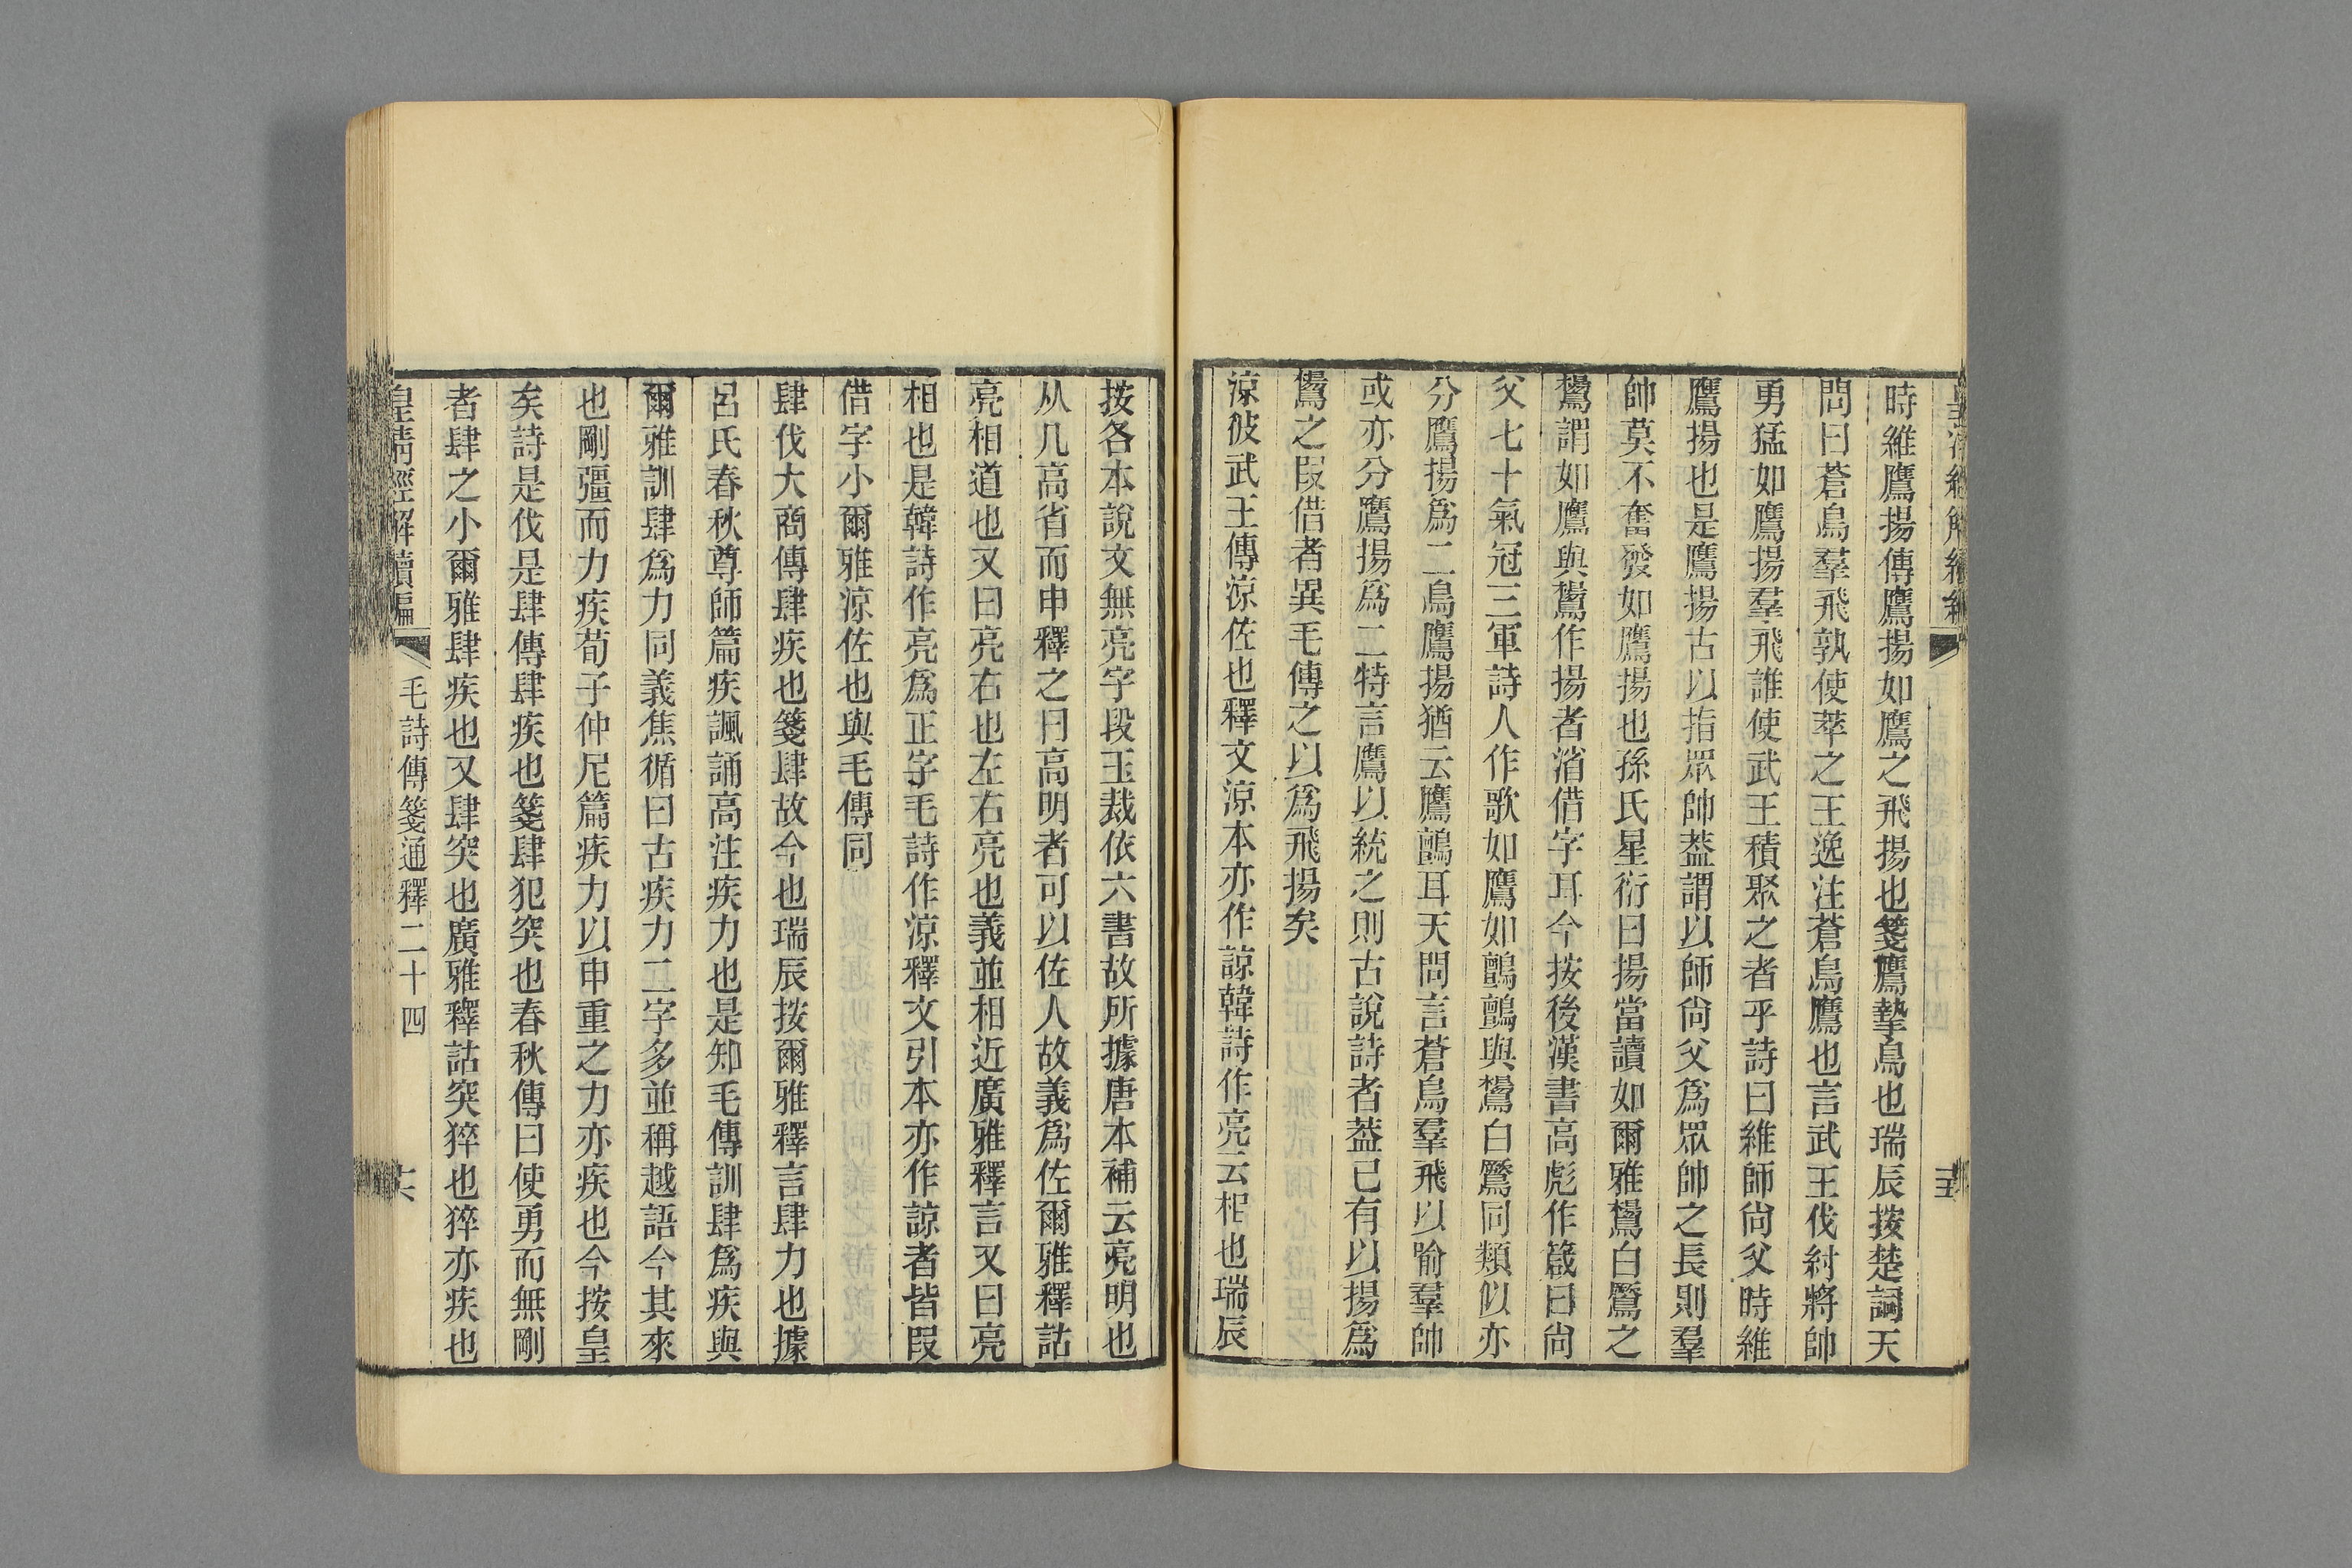 時維鷹揚傳鷹揚如鷹之飛揚也箋鷹摯鳥也瑞辰按楚詞天
問曰蒼鳥羣飛孰使萃之王逸注蒼鳥鷹也言武王伐紂將帥
勇猛如鷹揚羣飛誰使武王積聚之者乎詩曰維師尙父時維
鷹揚也是鷹揚古以指眾帥葢謂以師尙父爲眾帥之長則羣
帥莫不奮發如鷹揚也孫氏星衍曰揚當讀如爾雅鸉白鷢之
鸉謂如鷹與鸉作揚者渻借字耳今按後漢書高彪作箴曰尙
父七十氣冠三軍詩人作歌如鷹如鸇鸇與鸉白鷢同類似亦
分鷹揚爲二鳥鷹揚猶云鷹鸇耳天問言蒼鳥羣飛以喻羣帥
或亦分鷹揚爲二特言鷹以統之則古說詩者葢已有以揚爲
鸉之叚借者異毛傳之以爲飛揚矣
涼彼武王傳涼佐也釋文涼本亦作諒韓詩作亮云相也瑞辰
按各本說文無亮字段玉裁依六書故所據唐本補云亮明也
从几高省而申釋之曰高明者可以佐人故義爲佐爾雅釋詁
亮相道也又曰亮右也左右亮也義並相近廣雅釋言又曰亮
相也是韓詩作亮爲正字毛詩作涼釋文引本亦作諒者皆叚
借字小爾雅涼佐也與毛傳同
肆伐大商傳肆疾也箋肆故今也瑞辰按爾雅釋言肆力也據
呂氏春秋尊師篇疾諷誦高注疾力也是知毛傳訓肆爲疾與
爾雅訓肆爲力同義焦循曰古疾力二字多並稱越語今其來
也剛彊而力疾荀子仲尼篇疾力以申重之力亦疾也今按皇
矣詩是伐是肆傳肆疾也箋肆犯突也春秋傳曰使勇而無剛
者肆之小爾雅肆疾也又肆突也廣雅釋詁突猝也猝亦疾也
皇清經解續編
毛詩傳箋通釋二十四